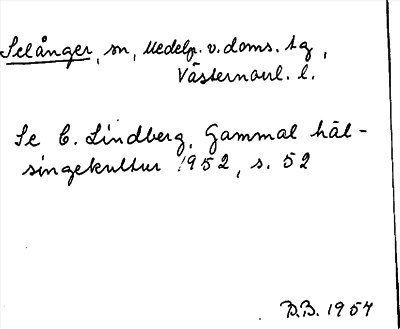 Selånger, sn, Medelp. v. doms. tg,
Västernorrl. l.
Se C. Lindberg, Gammal häl-
singekultur 1952, s. 52
B.B. 1957